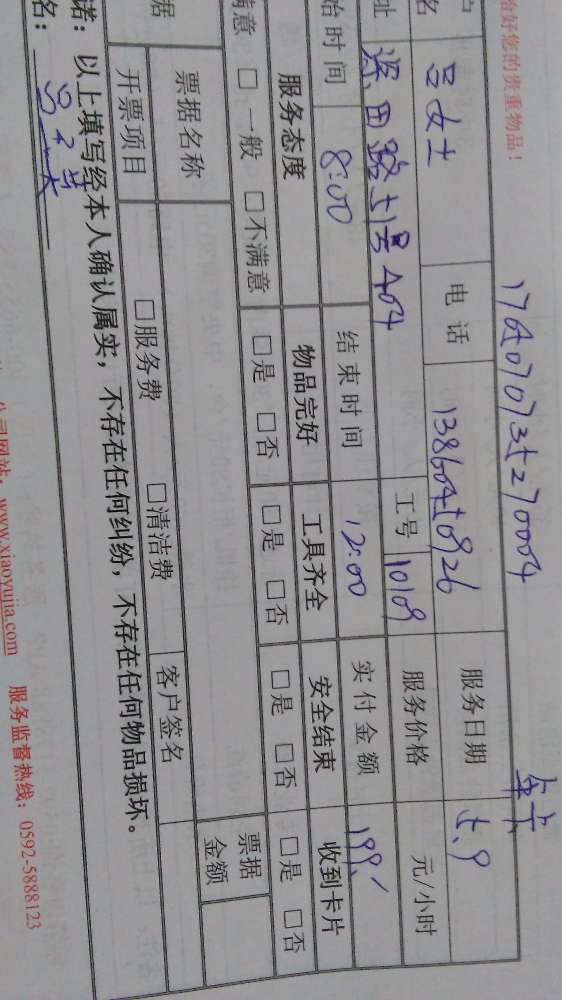 恰好您的贵重物品！
1764070735270004
金卡
户名 吕女士 电话 13860450926 服务日期 5.9
址 源田路51号404 工号 10109 服务价格 元/小时
始时间 8:00 结束时间 12:00 实付金额 199.
服务态度 物品完好 工具齐全 安全结束 收到卡片
满意 □ 一般 □ 不满意 □是 □否 □是 □否 □是 □否 □是 □否
据 票据名称 票据金额
开票项目 □服务费 □清洁费 客户签名
诺：以上填写经本人确认属实，不存在任何纠纷，不存在任何物品损坏。
名：
公司网站：www.xiaoyujia.com 服务监督热线：0592-5888123